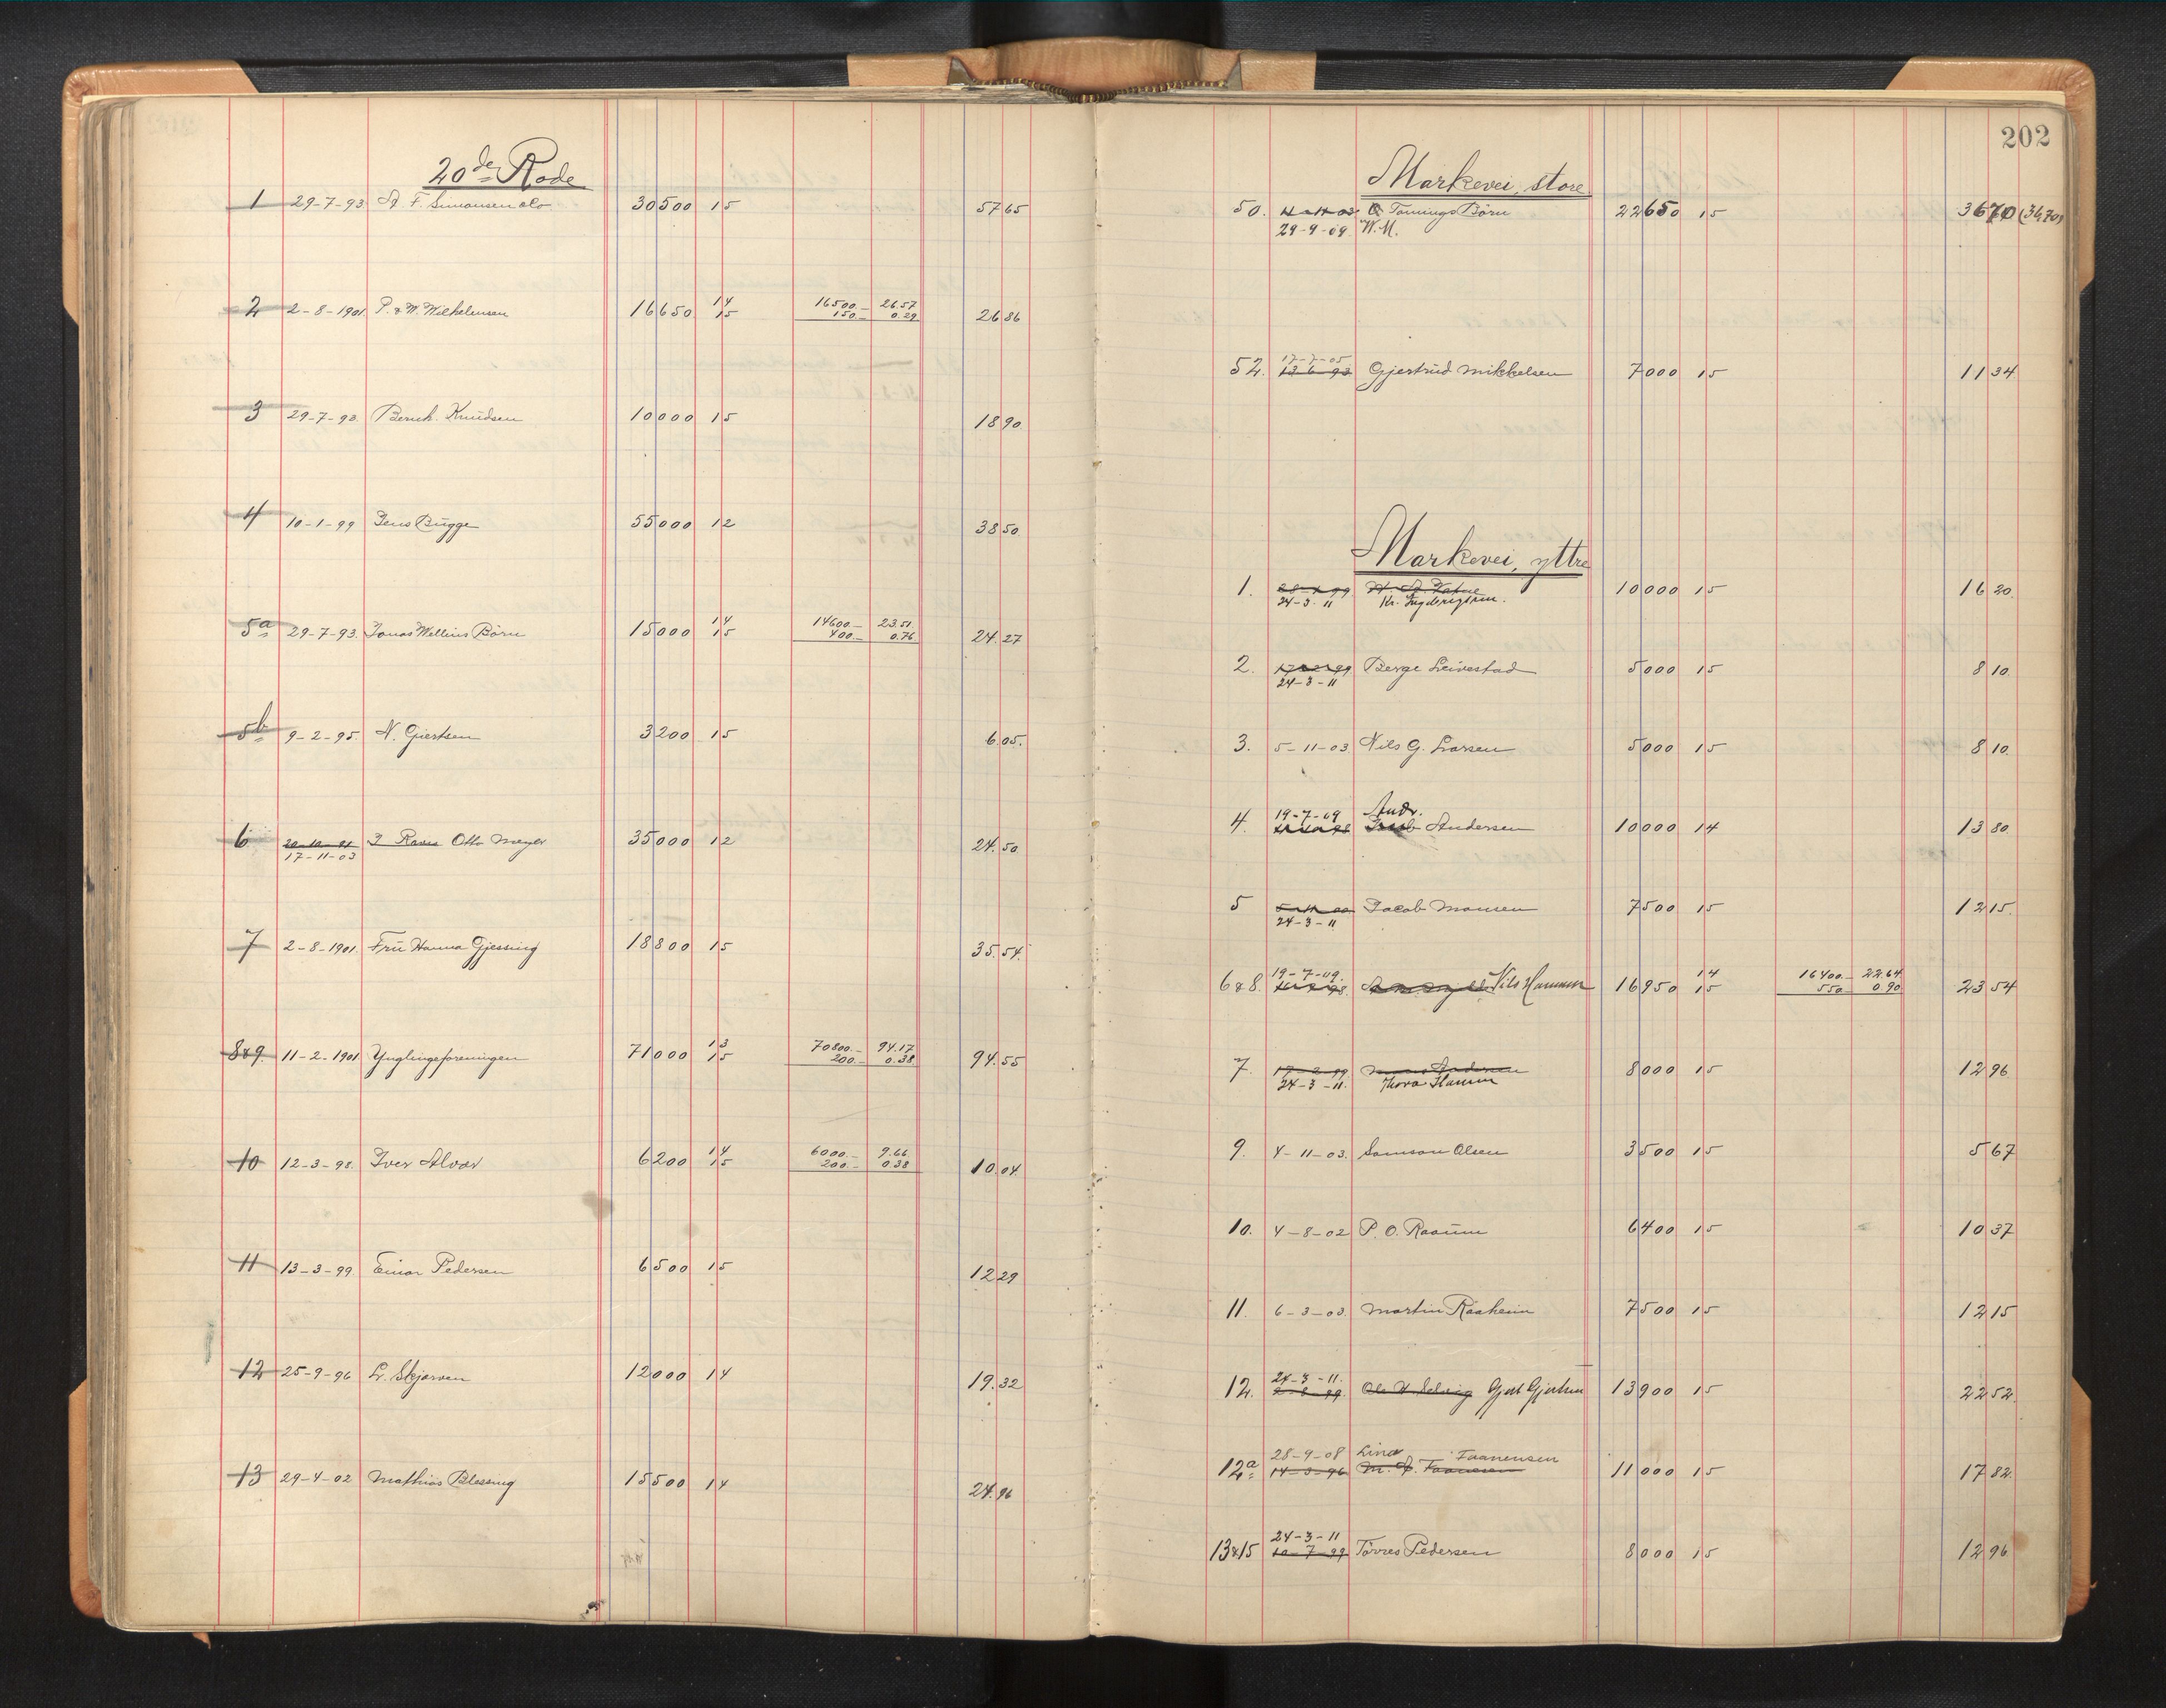 20de Rode
1 29-7-93 A. F. Simonsen & Co 30500 15 57 65
2 2-8-1901 P. & W. Wilhelmsen 16650 14 15 16500.- 26.57 150.- 0.29 26 86
3 29-7-93. Bernh. Knudsen 10000 15 18 90
4 10-1-99 Jens Bugge 55000 12 38 50
5a 29-7-93. Jonas Wellius Börn 15000 14 15 14600.- 23.51 400.- 0.76 24.27
5b 9-2-95. N. Giertsen 3200 15 6.05.
6 17-11-03 Otto Meyer 35000 12 24.50
7 2-8-1901. Fru Hanna Gjessing 18800 15 35.54.
8&9. 11-2-1901 Ynglingeforeningen 71000 13 15 70800.- 94.17 200.- 0.38 94.55
10 12-3-98. Iver Alver 6200 14 15 6000.- 9.66 200.- 0.38 10.04
11 13-3-99 Einar Pedersen 6500 15 12 29
12 25-9-96 L. Skjerven 12000 14 19.32
13 29-4-02 Mathias Blessing 15500 14 24.96
202
Markevei, store
50. Börn 22650 15 3670 (3670)
29-9-09 W. M.
52. 17-7-05 13-6-93 Gjertrud Mikkelsen 7000 15 11 34
Markevei, yttre
1. 10000 15 16 20
24-3-11 Kr.
2. 17-2-99 Berge Leivestad 5000 15 8 10
24-3-11
3. 5-11-03 Nils G. Larsen 5000 15 8 10
4. 19-7-09 Andr. Andersen 10000 14 13 80
5 Jacob Monsen 7500 15 12 15
24-3-11
6&8. 19-7-09. Nils Hammer 16950 14 15 16400.- 22.64 550 0.90 23 54
7. 17-2-99 Andersen 8000 15 12 96
24-3-11. Thora Hamm
9. 4-11-03. Samson Olsen 3500 15 5 67
10. 4-8-02 P. O. Raaum 6400 15 10 37
11. 6-3-03. Martin Råsheim 7500 15 12 15
12. 24-3-11. Gjert Gjertsen 13900 15 22 52
12a 28-9-08 Lina Faanensen
14-3-96 M. A. 11000 15 17 82
13&15 24-3-11
10-7-99 Törres Pedersen 8000 15 12 96